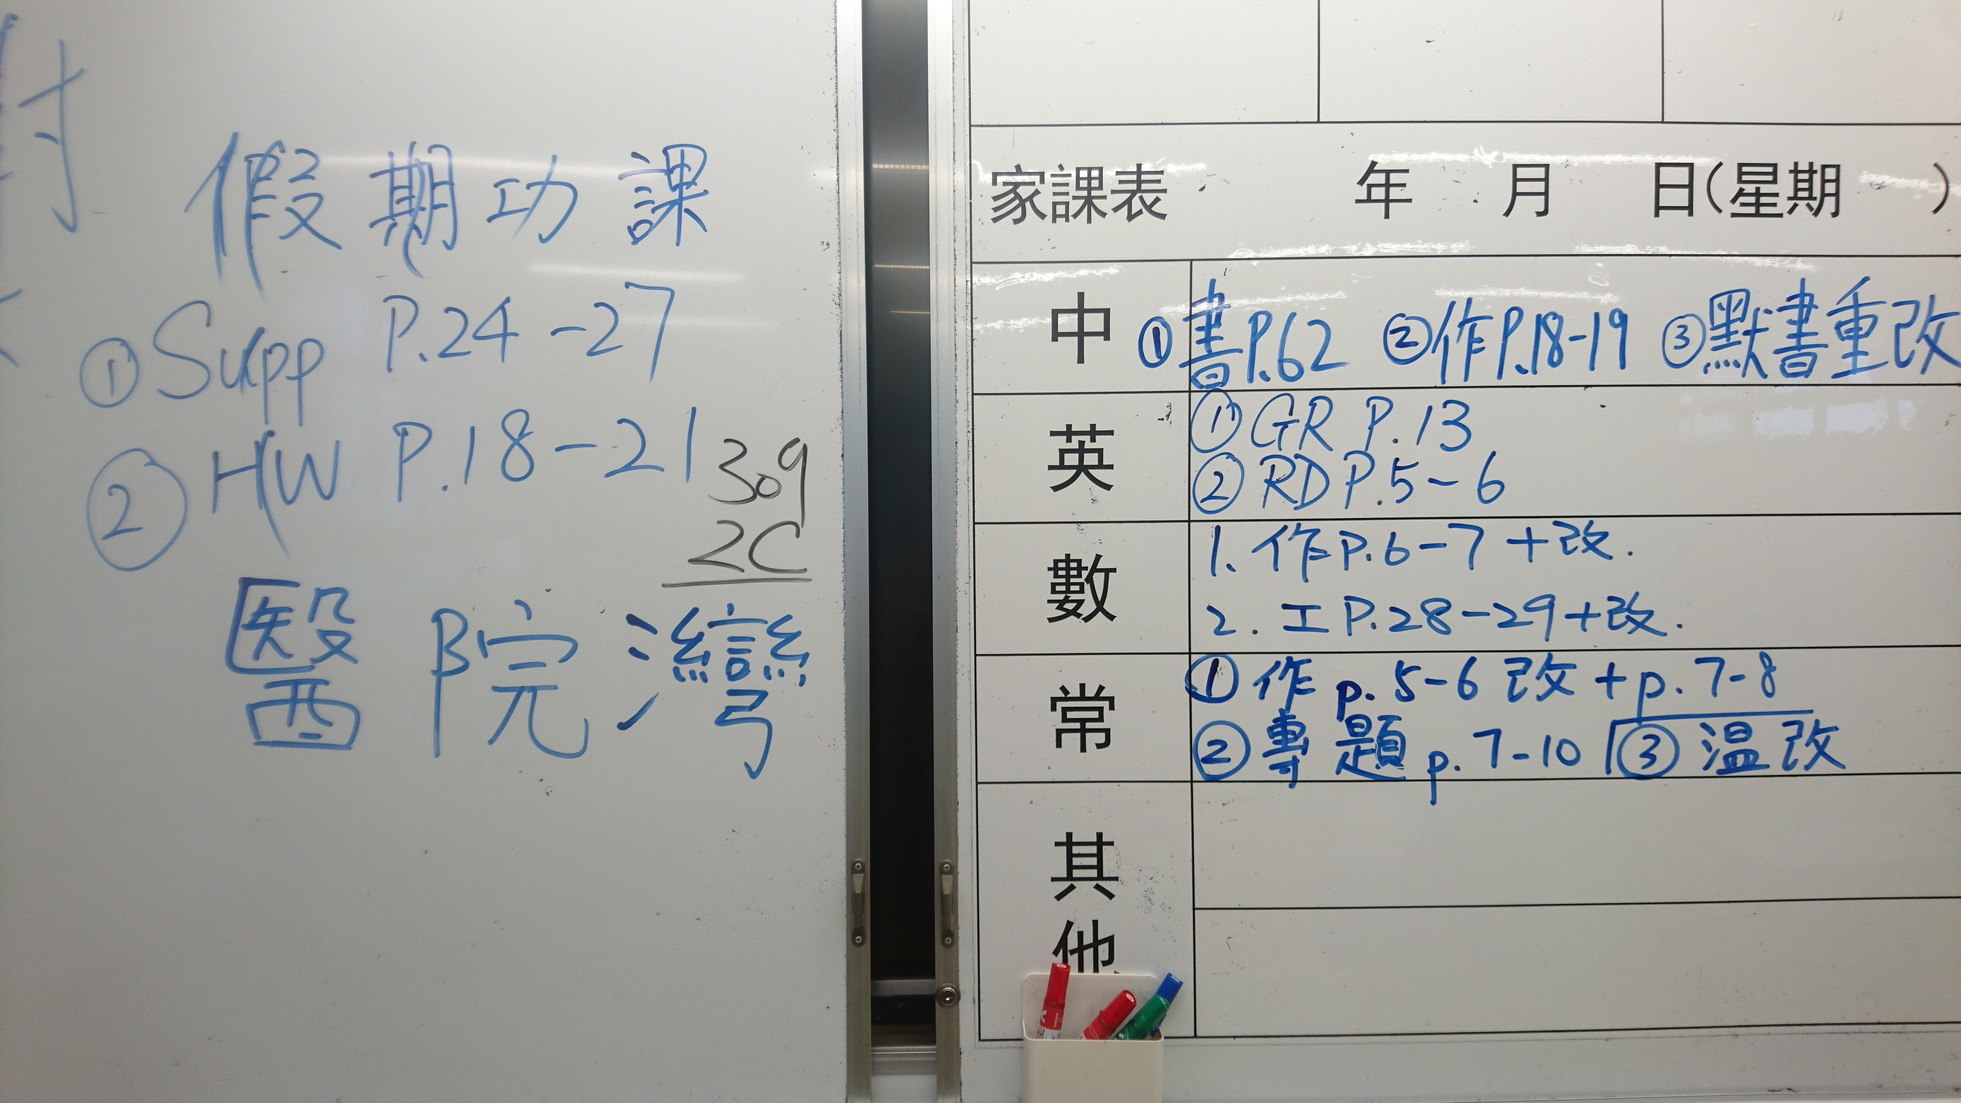 假期功課
① Supp P.24-27
② HW P.18-21
309
2C
醫院灣
家課表 年 月 日(星期 )
中 ①書P.62 ②作P.18-19 ③默書重改
英 ① GR P.13
② RD P.5-6
數 1. 作P.6-7+改.
2. 工P.28-29+改.
常 ① 作 p. 5-6 改 + p. 7-8
② 專題 p. 7-10 ③ 溫改
其他